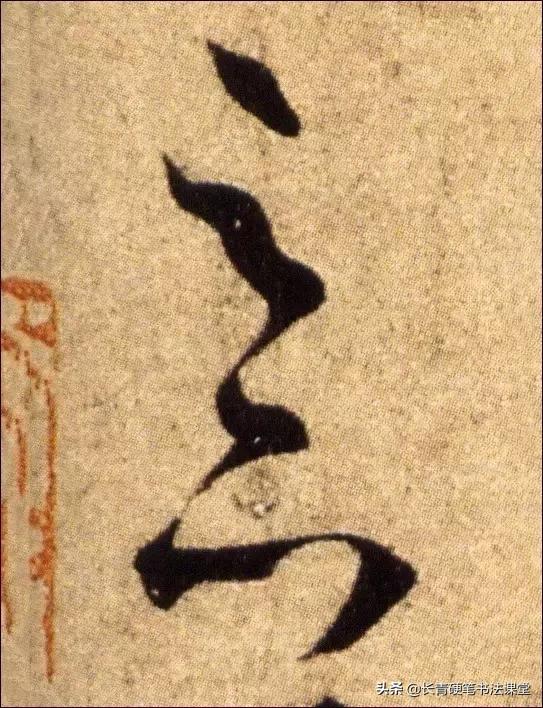 高
头条 @长青硬笔书法课堂